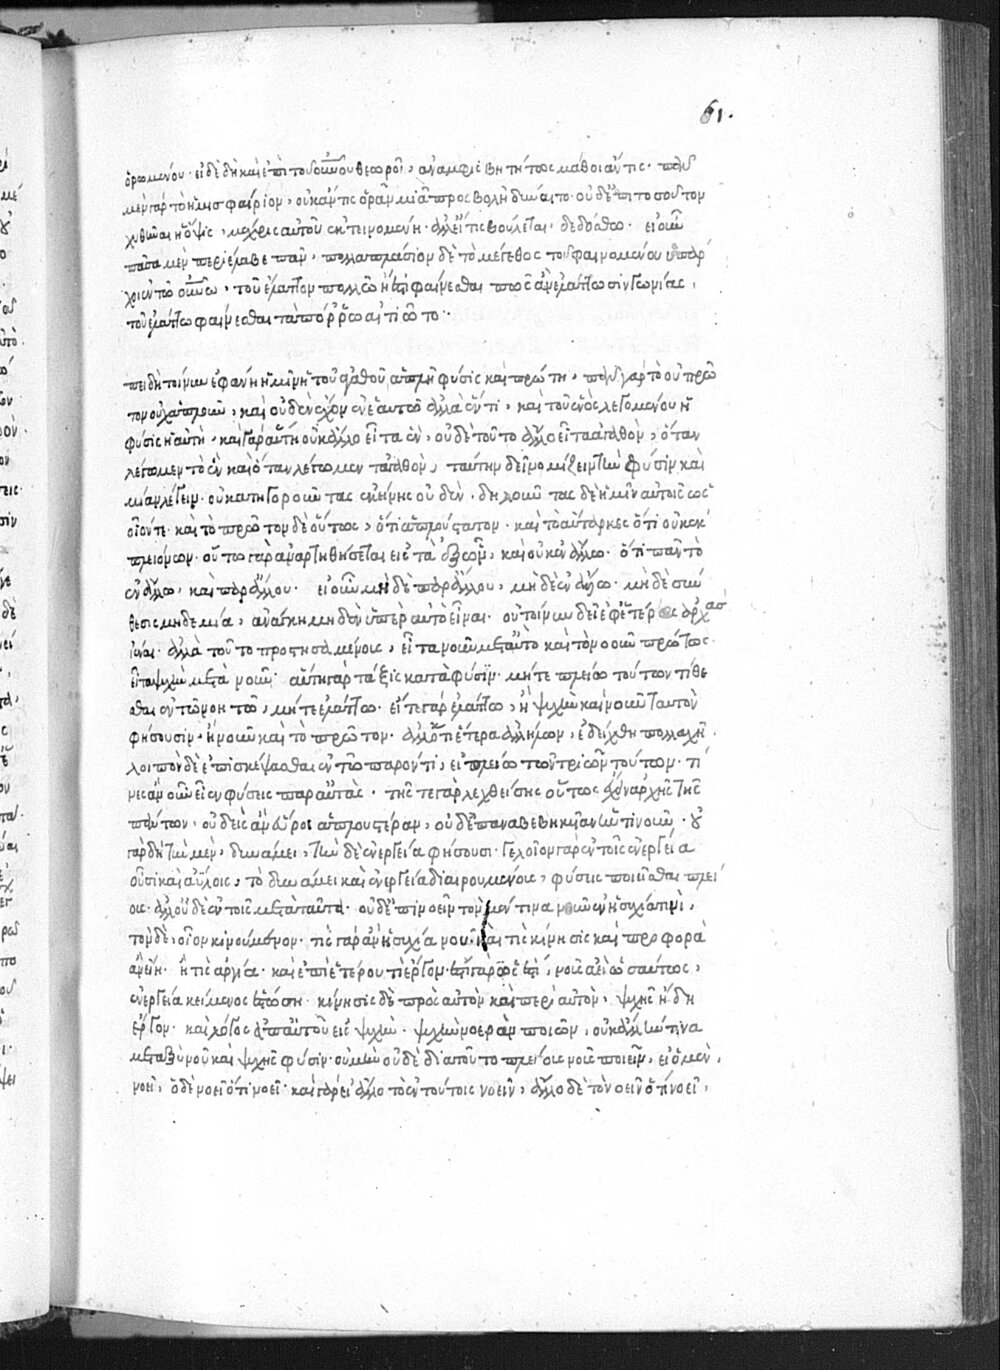 ὁρωμένου· εἰ δὲ δὴ καὶ ἐπὶ τοῦ οὐνοῦ θεωροῖ, ἀναμφισβητήτως μάθοι ἄν τις· πᾶν
μὲν γὰρ τὸ ἡμισφαίριον, οὐκ ἄν τις ὁρᾶν μιᾶ προσβολῆ δύναιτο· οὐδ' ἐπὶ τοσοῦτον
χυθῆναι ἡ ὄψις, μέχρις αὐτοῦ ἐκτεινομένη· ἀλλ' εἴ τις βούλεται, δεδόσθω· εἰ οὖν
πᾶσα μὲν περιέλαβε πᾶν, πολλαπλάσιον δὲ τὸ μέγεθος τοῦ φαινομένου ὑπάρ
χει ἐν τῶ οὐνῶ, τοῦ ἔλαττον πολλῶ ἢ ἔστι φαίνεσθαι, πῶς ἂν ἐλάττωσιν γωνίας,
τοῦ ἐλάττω φαίνεσθαι τὰ πόρρω αἰτιῶτο·
πειδὴ τοίνυν ἐφάνη ἡμῖν ἡ τοῦ ἀγαθοῦ ἁπλῆ φύσις καὶ πρώτη, πᾶν γὰρ τὸ οὐ πρῶ
τον οὐχ ἁπλοῦν, καὶ οὐδὲν ἔχον ἐν ἑαυτῶ ἀλλὰ ἕν τι, καὶ τοῦ ἑνὸς λεγομένου ἡ
φύσις ἡ αὐτὴ, καὶ γὰρ αὕτη οὐκ ἄλλο εἶτα ἓν, οὐδὲ τοῦτο ἄλλο εἶτα ἀγαθὸν, ὅταν
λέγωμεν τὸ ἓν καὶ ὅταν λέγωμεν τἀγαθὸν, ταύτην δεῖ νομίζειν τὴν φύσιν καὶ
μίαν λέγειν· οὐ κατηγοροῦντας ἐκείνης οὐδὲν· δηλοῦντας δὲ ἡμῖν αὐτοῖς ὡς
οἷόν τε· καὶ τὸ πρῶτον δὲ οὕτως, ὅτι ἁπλούστατον· καὶ τὸ αὔταρκες ὅτι οὐκ ἐκ
πλειόνων· οὕτω γὰρ ἀναρτηθήσεται εἰς τὰ ἐξ ὧν, καὶ οὐκ ἐν ἄλλω· ὅτι πᾶν τὸ
ἐν ἄλλω, καὶ παρ' ἄλλου· εἰ οὖν μὴ δὲ παρ' ἄλλου, μὴ δὲ ἐν ἄλλω· μὴ δὲ σύν
θεσις μηδεμία, ἀνάγκη μηδὲν ὑπὲρ αὐτὸ εἶναι· οὐ τοίνυν δεῖ ἐφ' ἑτέρας ἀρχὰς
ἰέναι· ἀλλὰ τοῦτο προστησαμένοις, εἶτα νοῦν μετ' αὐτὸ καὶ τὸ νοοῦν πρώτως·
εἶτα ψυχὴν μετὰ νοῦν· αὕτη γὰρ τάξις κατὰ φύσιν· μήτε πλείω τούτων τίθε
σθαι ἐν τῶ νοητῶ, μήτε ἐλάττω· εἴτε γὰρ ἐλάττω, ἢ ψυχὴν καὶ νοῦν ταυτὸν
φήσουσιν· ἢ νοῦν καὶ τὸ πρῶτον· ἀλλ' ὅτι ἕτερα ἀλλήλων, ἐδείχθη πολλαχῆ·
λοιπὸν δὲ ἐπισκέψασθαι ἐν τῶ παρόντι, εἰ πλείω τῶν τριῶν τούτων· τί
νες ἂν οὖν εἶεν φύσεις παρ' αὐτὰς· τῆς τε γὰρ λεχθείσης οὕτως ἔχειν ἀρχῆς τῆς
πάντων, οὐδεὶς ἂν εὕροι ἁπλουστέραν, οὐδ' ἐπαναβεβηκυῖαν ἡντινοῦν· οὐ
γὰρ δὴ τὴν μὲν, δυνάμει, τὴν δὲ ἐνεργεία φήσουσι· γελοῖον γὰρ ἐν τοῖς ἐνεργεία
οὖσι καὶ ἀΰλοις, τὸ δυνάμει καὶ ἐνεργεία διαιρουμένοις, φύσεις ποιεῖσθαι πλεί
ους· ἀλλ' οὐδὲ ἐν τοῖς μετὰ ταῦτα· οὐδ' ἐπινοεῖν τὸν μέν τινα νοῦν ἐν ἡσυχία τινὶ,
τὸν δὲ, οἷον κινούμενον· τίς γὰρ ἂν ἡσυχία νοῦ καὶ τίς κίνησις καὶ προφορὰ
ἂν εἴη· ἢ τίς ἀργία· καὶ ἐπὶ ἑτέρου τί ἔργον· ἔστι γὰρ ὡς ἔστι, νοῦς ἀεὶ ὡσαύτως,
ἐνεργεία κείμενος ἑστώση· κίνησις δὲ πρὸς αὐτὸν καὶ περὶ αὐτὸν, ψυχῆς ἤδη
ἔργον· καὶ λόγος ἀπ' αὐτοῦ εἰς ψυχὴν· ψυχὴν νοερὰν ποιῶν, οὐκ ἄλλην τινὰ
μεταξὺ νοῦ καὶ ψυχῆς φύσιν· οὐ μὴν οὐδὲ διὰ τοῦτο πλείους νοῦς ποιεῖν, εἰ ὁ μὲν,
νοεῖ, ὁ δὲ νοεῖ ὅτι νοεῖ· καὶ γὰρ εἰ ἄλλο τὸ ἐν τούτοις νοεῖν, ἄλλο δὲ τὸ νοεῖν ὅτι νοεῖ,